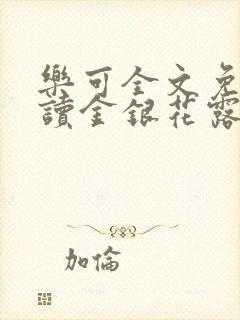 樂可全文免
讀金銀花露
加倫